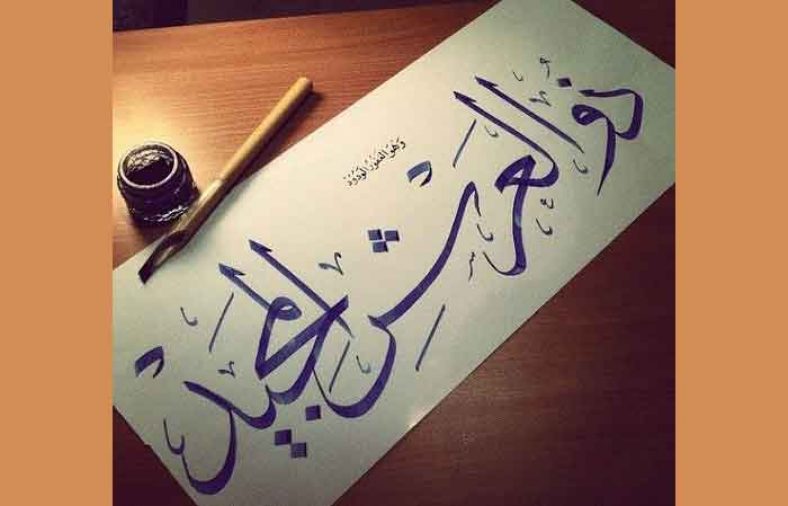 وَهُوَ الْغَفُورُ الْوَدُودُ
ذُو الْعَرْشِ الْمَجِيدُ